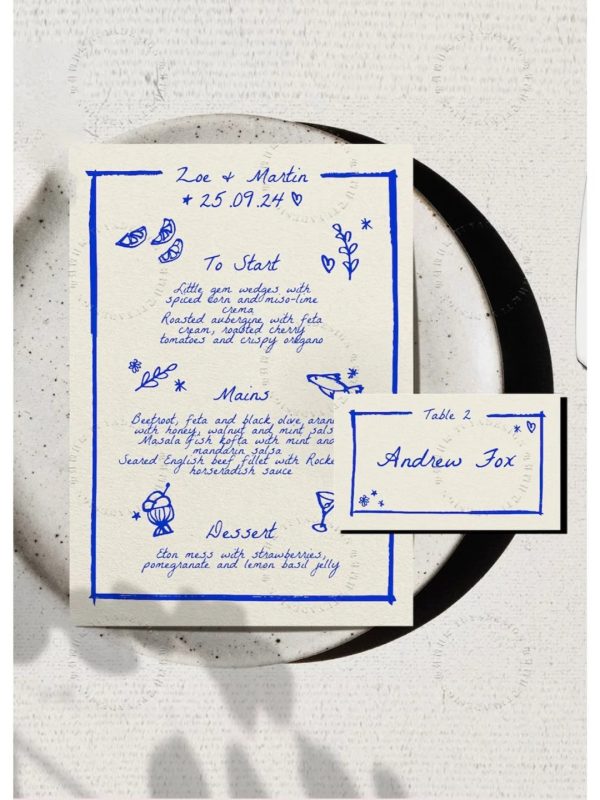 Zoe & Martin
25.09.24
To Start
Little gem wedges with
spiced corn and miso-lime
crema
Roasted aubergine with feta
cream, roasted cherry
tomatoes and crispy oregano
Mains
Beetroot, feta and black olive
with honey, walnut and mint
Masala fish kofta with mint and
mandarin salsa
Seared English beef fillet with
horseradish sauce
Dessert
Eton mess with strawberries,
pomegranate and lemon basil jelly
Table 2
Andrew Fox